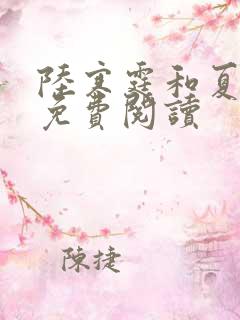 陸寒霆和夏
免費閱讀
陳捷